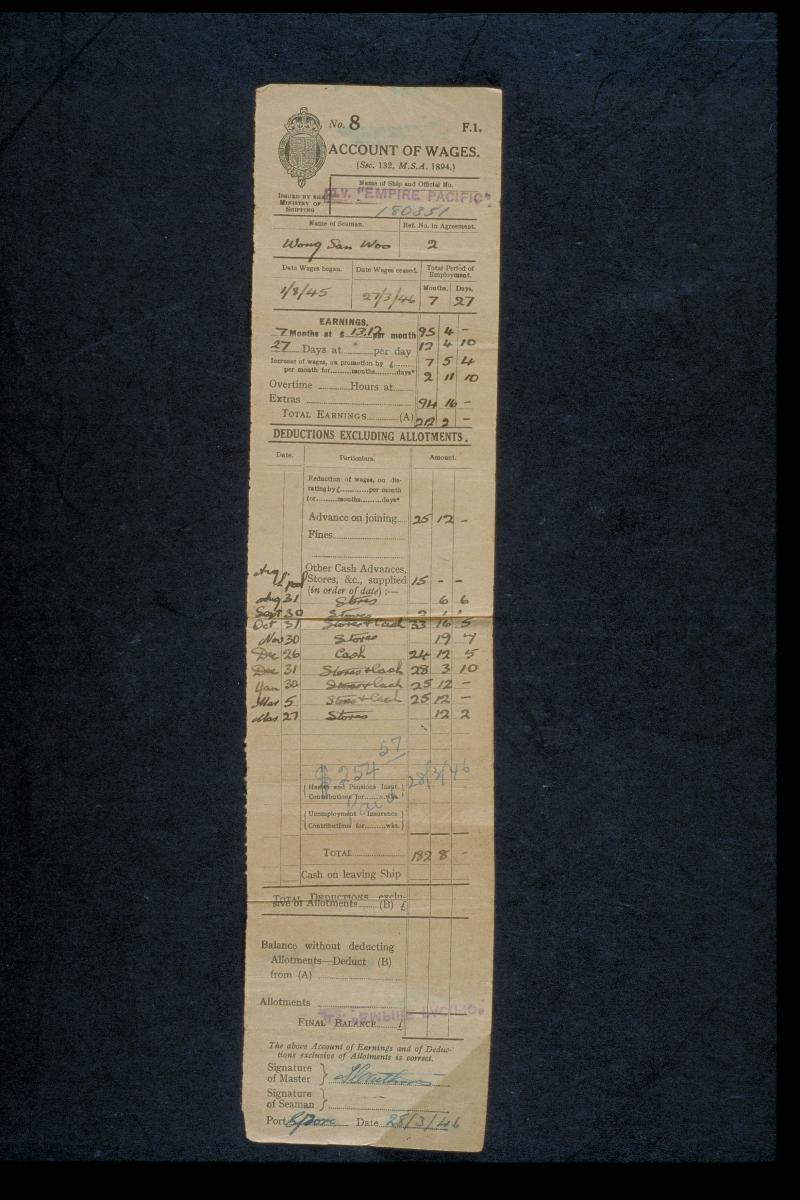 No. 8 F.1.
ACCOUNT OF WAGES.
(Sec. 132, M.S.A. 1894.)
ISSUED BY THE MINISTRY OF SHIPPING
Name of Ship and Official No.
M.V. "EMPIRE PACIFIC"
180351
Name of Seaman. Ref. No. in Agreement.
Wong San Woo 2
Date Wages began. Date Wages ceased. Total Period of Employment.
Months. Days.
1/8/45 27/3/46 7 27
EARNINGS.
7 Months at £ 13.12 per month 95 4 -
27 Days at " per day 12 4 10
Increase of wages, on promotion by £ 7 5 4
per month for months days* 2 11 10
Overtime Hours at
Extras 94 16 -
TOTAL EARNINGS (A) 212 2 -
DEDUCTIONS EXCLUDING ALLOTMENTS.
Date. Particulars. Amount.
Reduction of wages, on dis-
rating by £ per month
for months days*
Advance on joining 25 12 -
Fines
Other Cash Advances,
Stores, &c., supplied 15 - -
(in order of date) :—
Aug 31 Stores 6 6
Sept 30 Stores
Oct 31 Stores & Cash 33 16 5
Nov 30 Stores 19 7
Dec 26 Cash 24 12 5
Dec 31 Stores & Cash 28 3 10
Jan 30 Stores & Cash 25 12 -
Mar 5 Stores & Cash 25 12 -
Mar 27 Stores 12 2
$254 57
Paid 28/3/46
Health and Pensions Insur.
Contributions for wks.
Unemployment Insurance
Contributions for wks.
TOTAL 182 8 -
Cash on leaving Ship
TOTAL DEDUCTIONS exclu-
sive of Allotments (B) £
Balance without deducting
Allotments—Deduct (B)
from (A)
Allotments
M.V. "EMPIRE PACIFIC"
FINAL BALANCE £
The above Account of Earnings and of Deduc-
tions exclusive of Allotments is correct.
Signature
of Master
Signature
of Seaman
Port S'pore Date 28/3/46